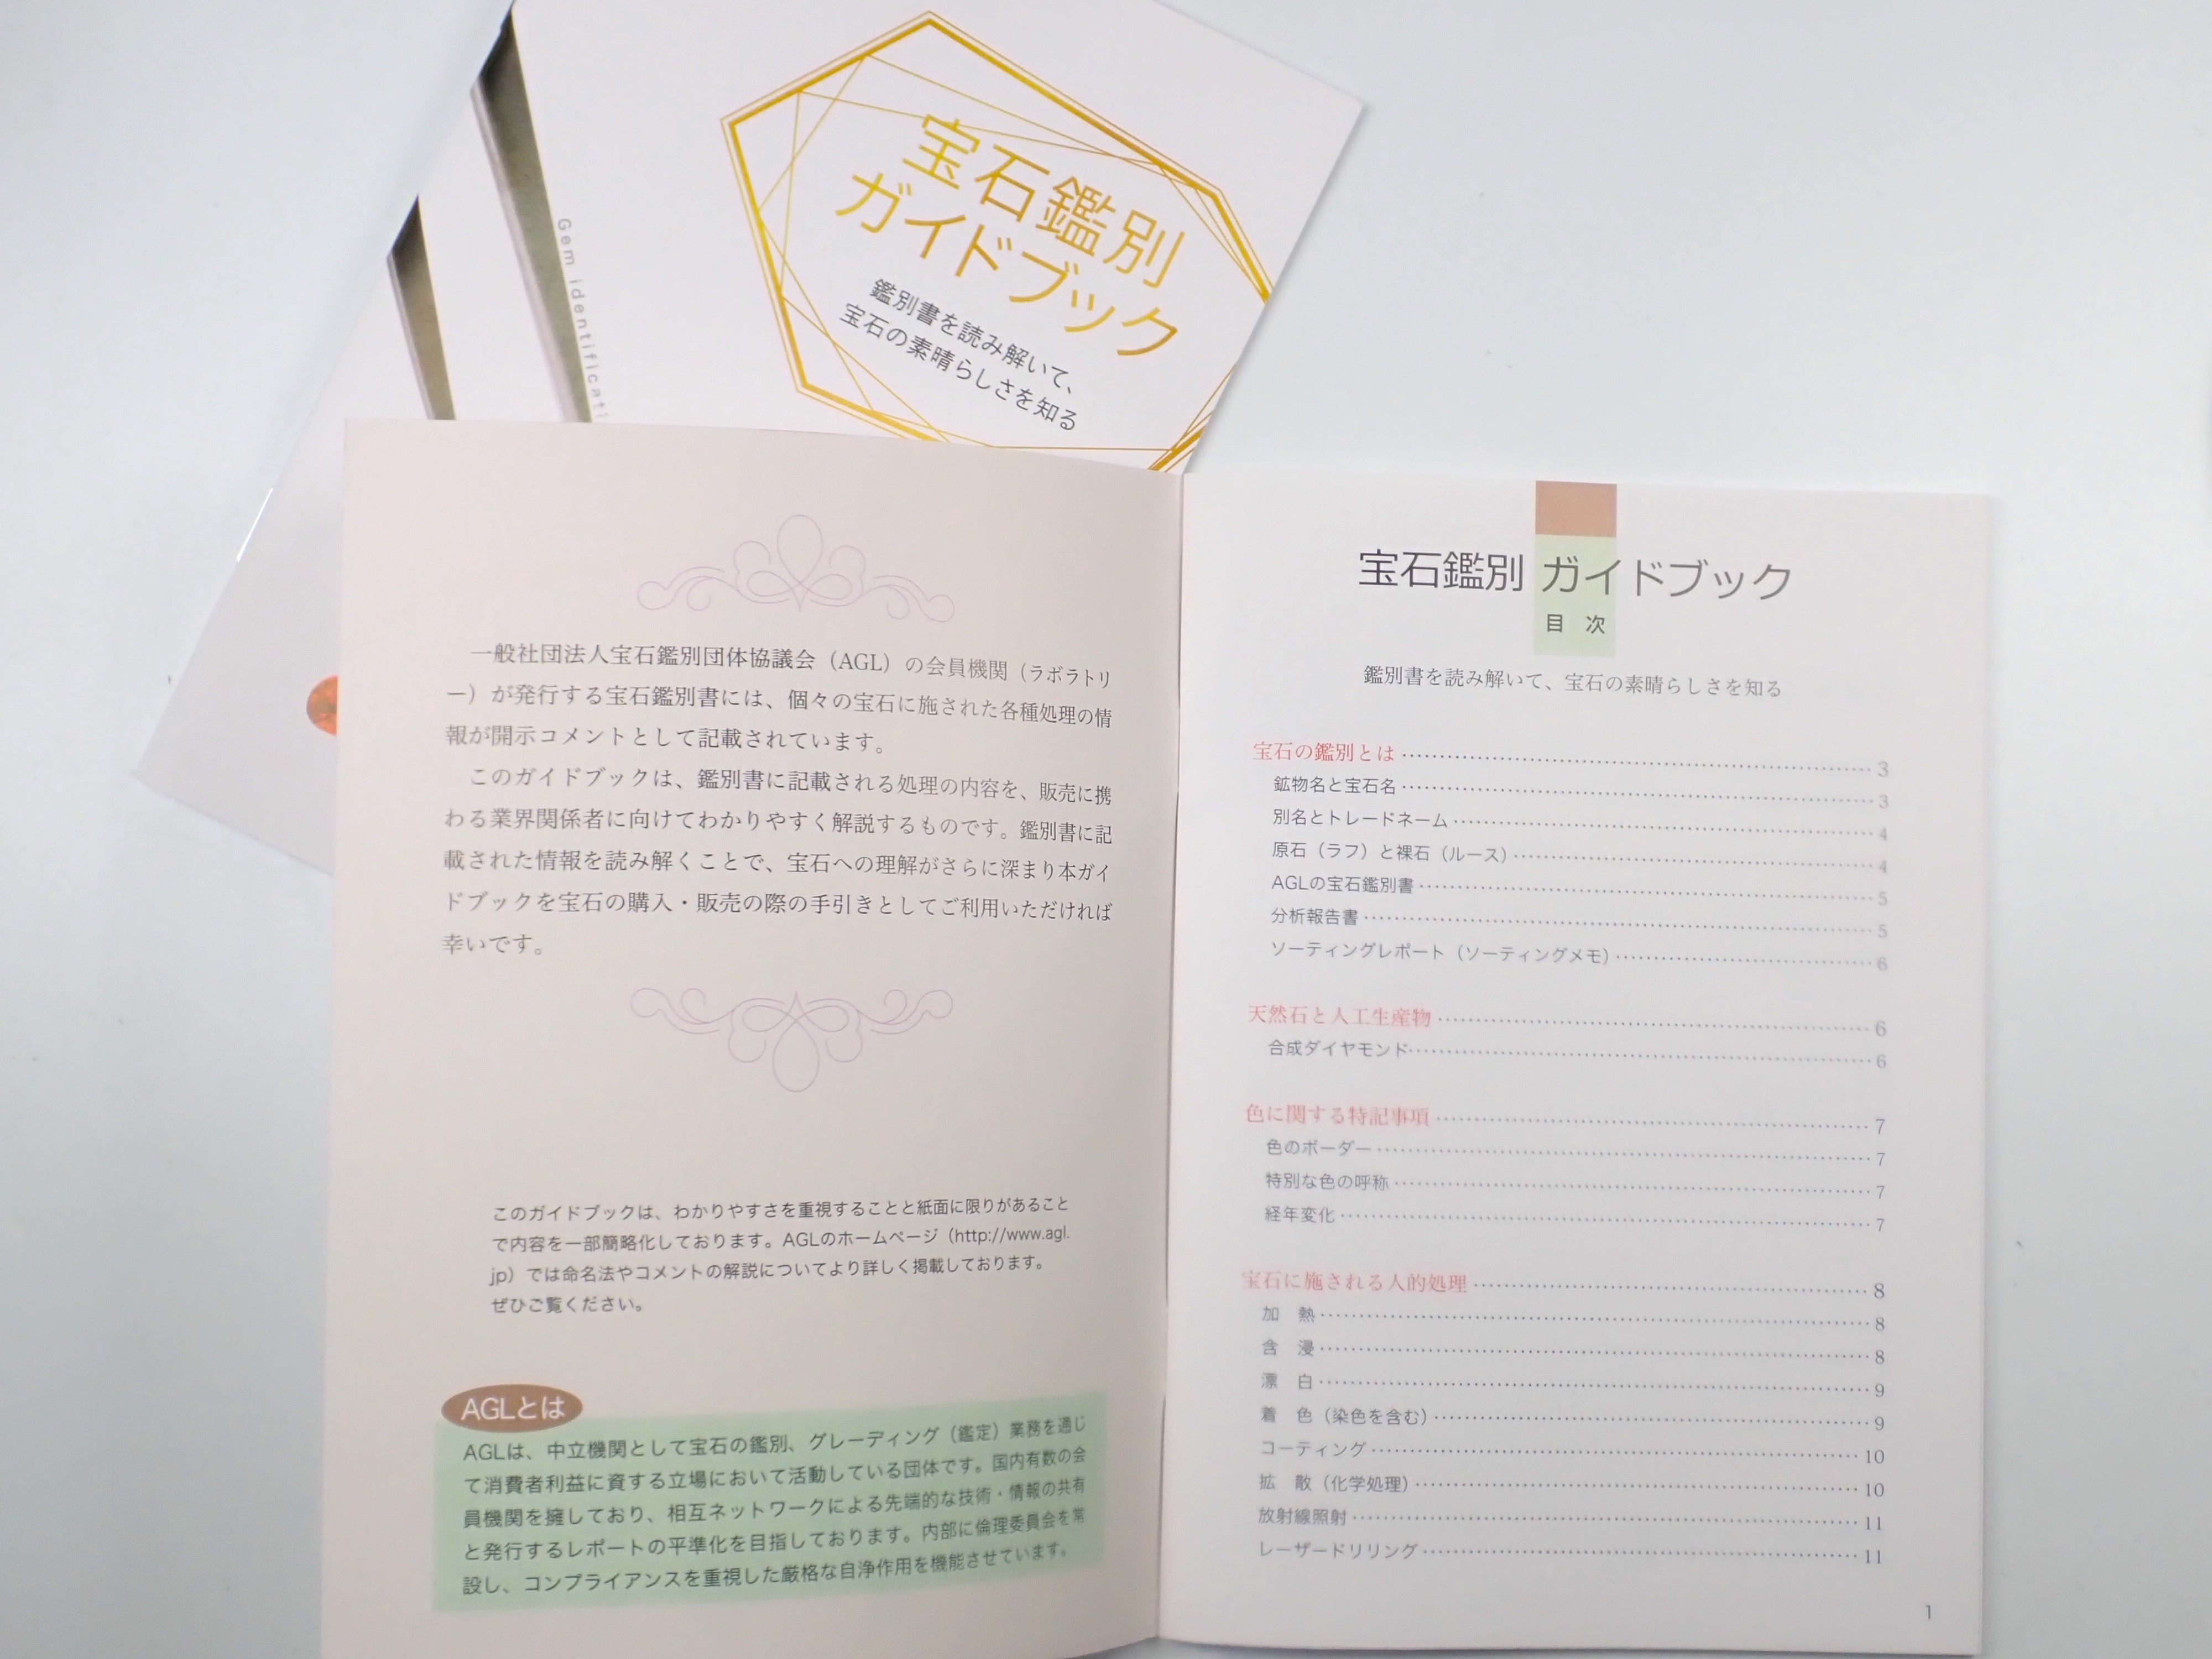 宝石鑑別
ガイドブック
鑑別書を読み解いて、
宝石の素晴らしさを知る
Gem identificati
一般社団法人宝石鑑別団体協議会（AGL）の会員機関（ラボラトリ
ー）が発行する宝石鑑別書には、個々の宝石に施された各種処理の情
報が開示コメントとして記載されています。
このガイドブックは、鑑別書に記載される処理の内容を、販売に携
わる業界関係者に向けてわかりやすく解説するものです。鑑別書に記
載された情報を読み解くことで、宝石への理解がさらに深まり本ガイ
ドブックを宝石の購入・販売の際の手引きとしてご利用いただければ
幸いです。
このガイドブックは、わかりやすさを重視することと紙面に限りがあること
で内容を一部簡略化しております。AGLのホームページ（http://www.agl.
jp）では命名法やコメントの解説についてより詳しく掲載しております。
ぜひご覧ください。
AGLとは
AGLは、中立機関として宝石の鑑別、グレーディング（鑑定）業務を通じ
て消費者利益に資する立場において活動している団体です。国内有数の会
員機関を擁しており、相互ネットワークによる先端的な技術・情報の共有
と発行するレポートの平準化を目指しております。内部に倫理委員会を常
設し、コンプライアンスを重視した厳格な自浄作用を機能させています。
宝石鑑別 ガイドブック
目 次
鑑別書を読み解いて、宝石の素晴らしさを知る
宝石の鑑別とは 3
鉱物名と宝石名 3
別名とトレードネーム 4
原石（ラフ）と裸石（ルース） 4
AGLの宝石鑑別書 5
分析報告書 5
ソーティングレポート（ソーティングメモ） 6
天然石と人工生産物 6
合成ダイヤモンド 6
色に関する特記事項 7
色のボーダー 7
特別な色の呼称 7
経年変化 7
宝石に施される人的処理 8
加 熱 8
含 浸 8
漂 白 9
着 色（染色を含む） 9
コーティング 10
拡 散（化学処理） 10
放射線照射 11
レーザードリリング 11
1